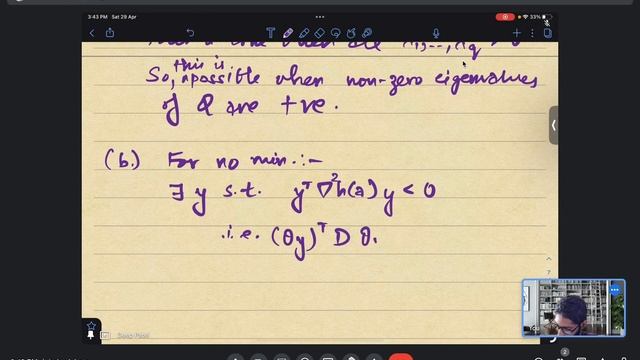 3:43 PM Sat 29 Apr
33%
So, this is possible when non-zero eigenvalues
of Q are +ve.
(b.) For no min. :-
∃ y s.t. yᵀ ∇²h(a) y < 0
i.e. (θy)ᵀ D θ
7
2